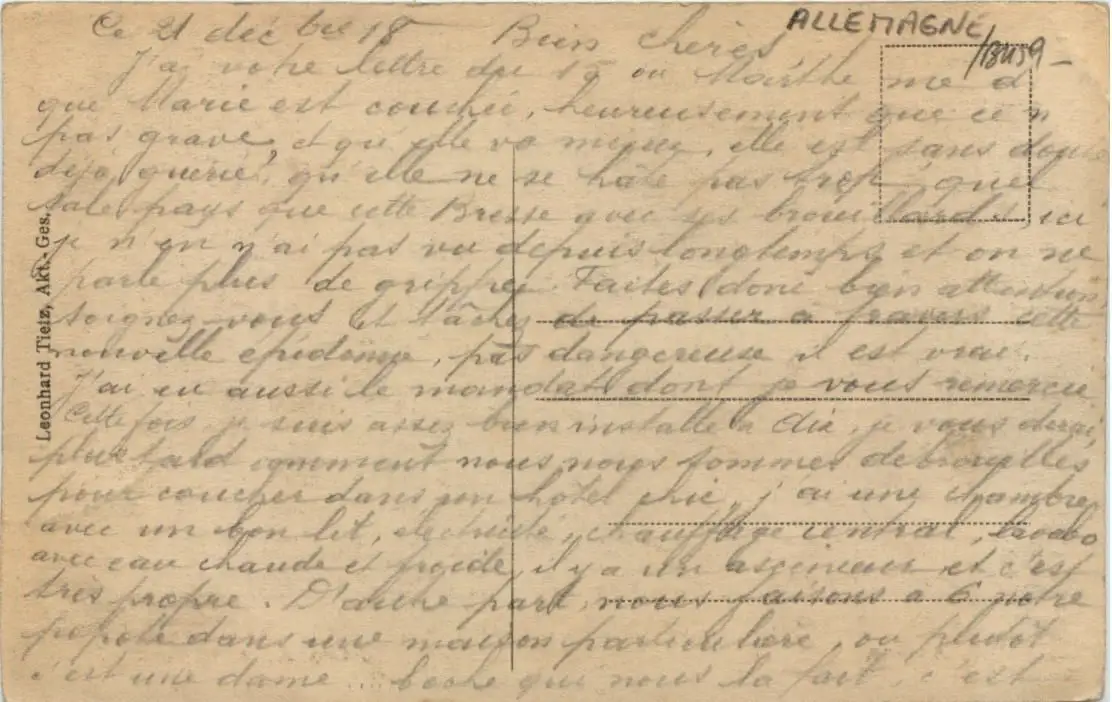 ALLEMAGNE
Ce 21 déc bre 18 Bien chères
J'ai votre lettre du 19 ou Marthe me d
que Marie est couchée, heureusement que ce n
pas grave, et qu'elle va mieux, elle est sans doute
déjà guérie, qu'elle ne se hâte pas trop, quel
sale pays que cette Bresse avec ses brouillards, ici
je n'en n'ai pas vu depuis longtemps et on ne
parle plus de grippe. Faites donc bien attention,
soignez-vous et tâchez de passer à travers cette
nouvelle épidémie, pas dangereuse il est vrai.
J'ai eu aussi le mandat dont je vous remercie
Cette fois je suis assez bien installé à Aix, je vous dirai
plus tard comment nous nous sommes débrouillés
pour coucher dans un hôtel chic, j'ai une chambre
avec un bon lit, électricité, chauffage central, lavabo
avec eau chaude et froide, il y a un ascenseur et c'est
très propre. D'autre part, nous faisons à 6 notre
popote dans une maison particulière, ou plutôt
c'est une dame... boche qui nous la fait, c'est
Leonhard Tietz, Akt.-Ges.